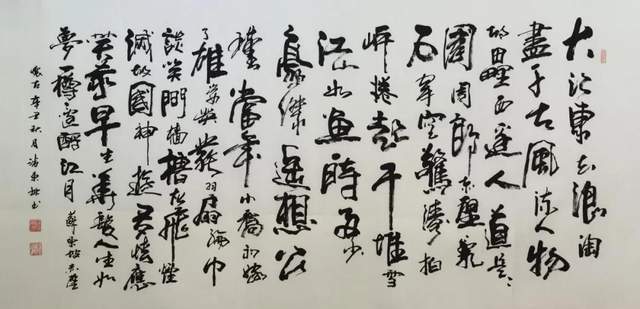 大江東去浪淘
盡千古風流人物
故壘西邊人道是
國周郎赤壁亂
石穿空驚濤拍
岸捲起千堆雪
江山如畫時多少
豪傑遙想公
瑾當年小喬初嫁
了雄姿英發羽扇綸巾
談笑間檣櫓灰飛煙
滅故國神遊多情應
笑我早生華髮人生如
夢一樽還酹江月 蘇東坡赤壁
辛丑秋月 書